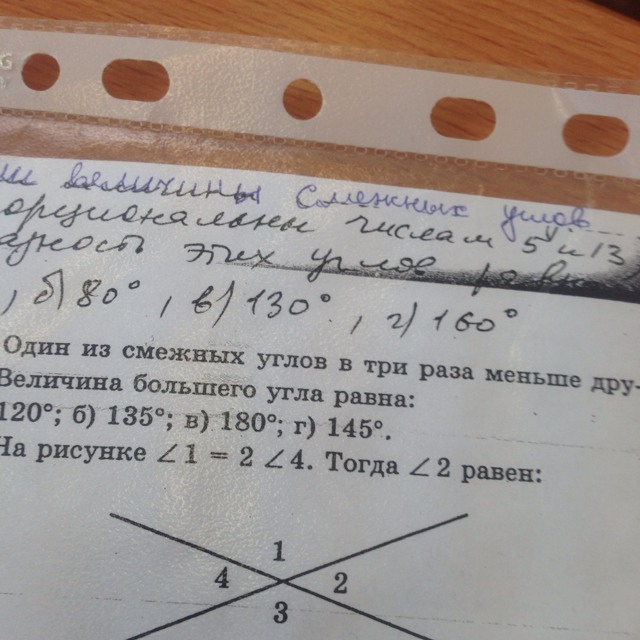 величины смежных углов
орциональны числам 5 и 13
азность этих углов рав
, б) 80°, в) 130°, г) 160°
Один из смежных углов в три раза меньше дру-
Величина большего угла равна:
120°; б) 135°; в) 180°; г) 145°.
На рисунке ∠1 = 2 ∠4. Тогда ∠2 равен:
1
4 2
3